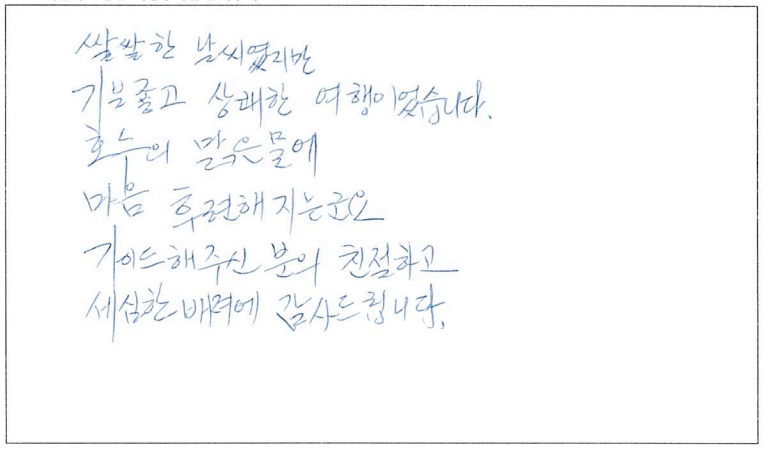 쌀쌀한 날씨였지만
기분좋고 상쾌한 여행이었습니다.
호수의 맑은물에
마음 후련해지는군요
가이드해주신 분의 친절하고
세심한 배려에 감사드립니다.